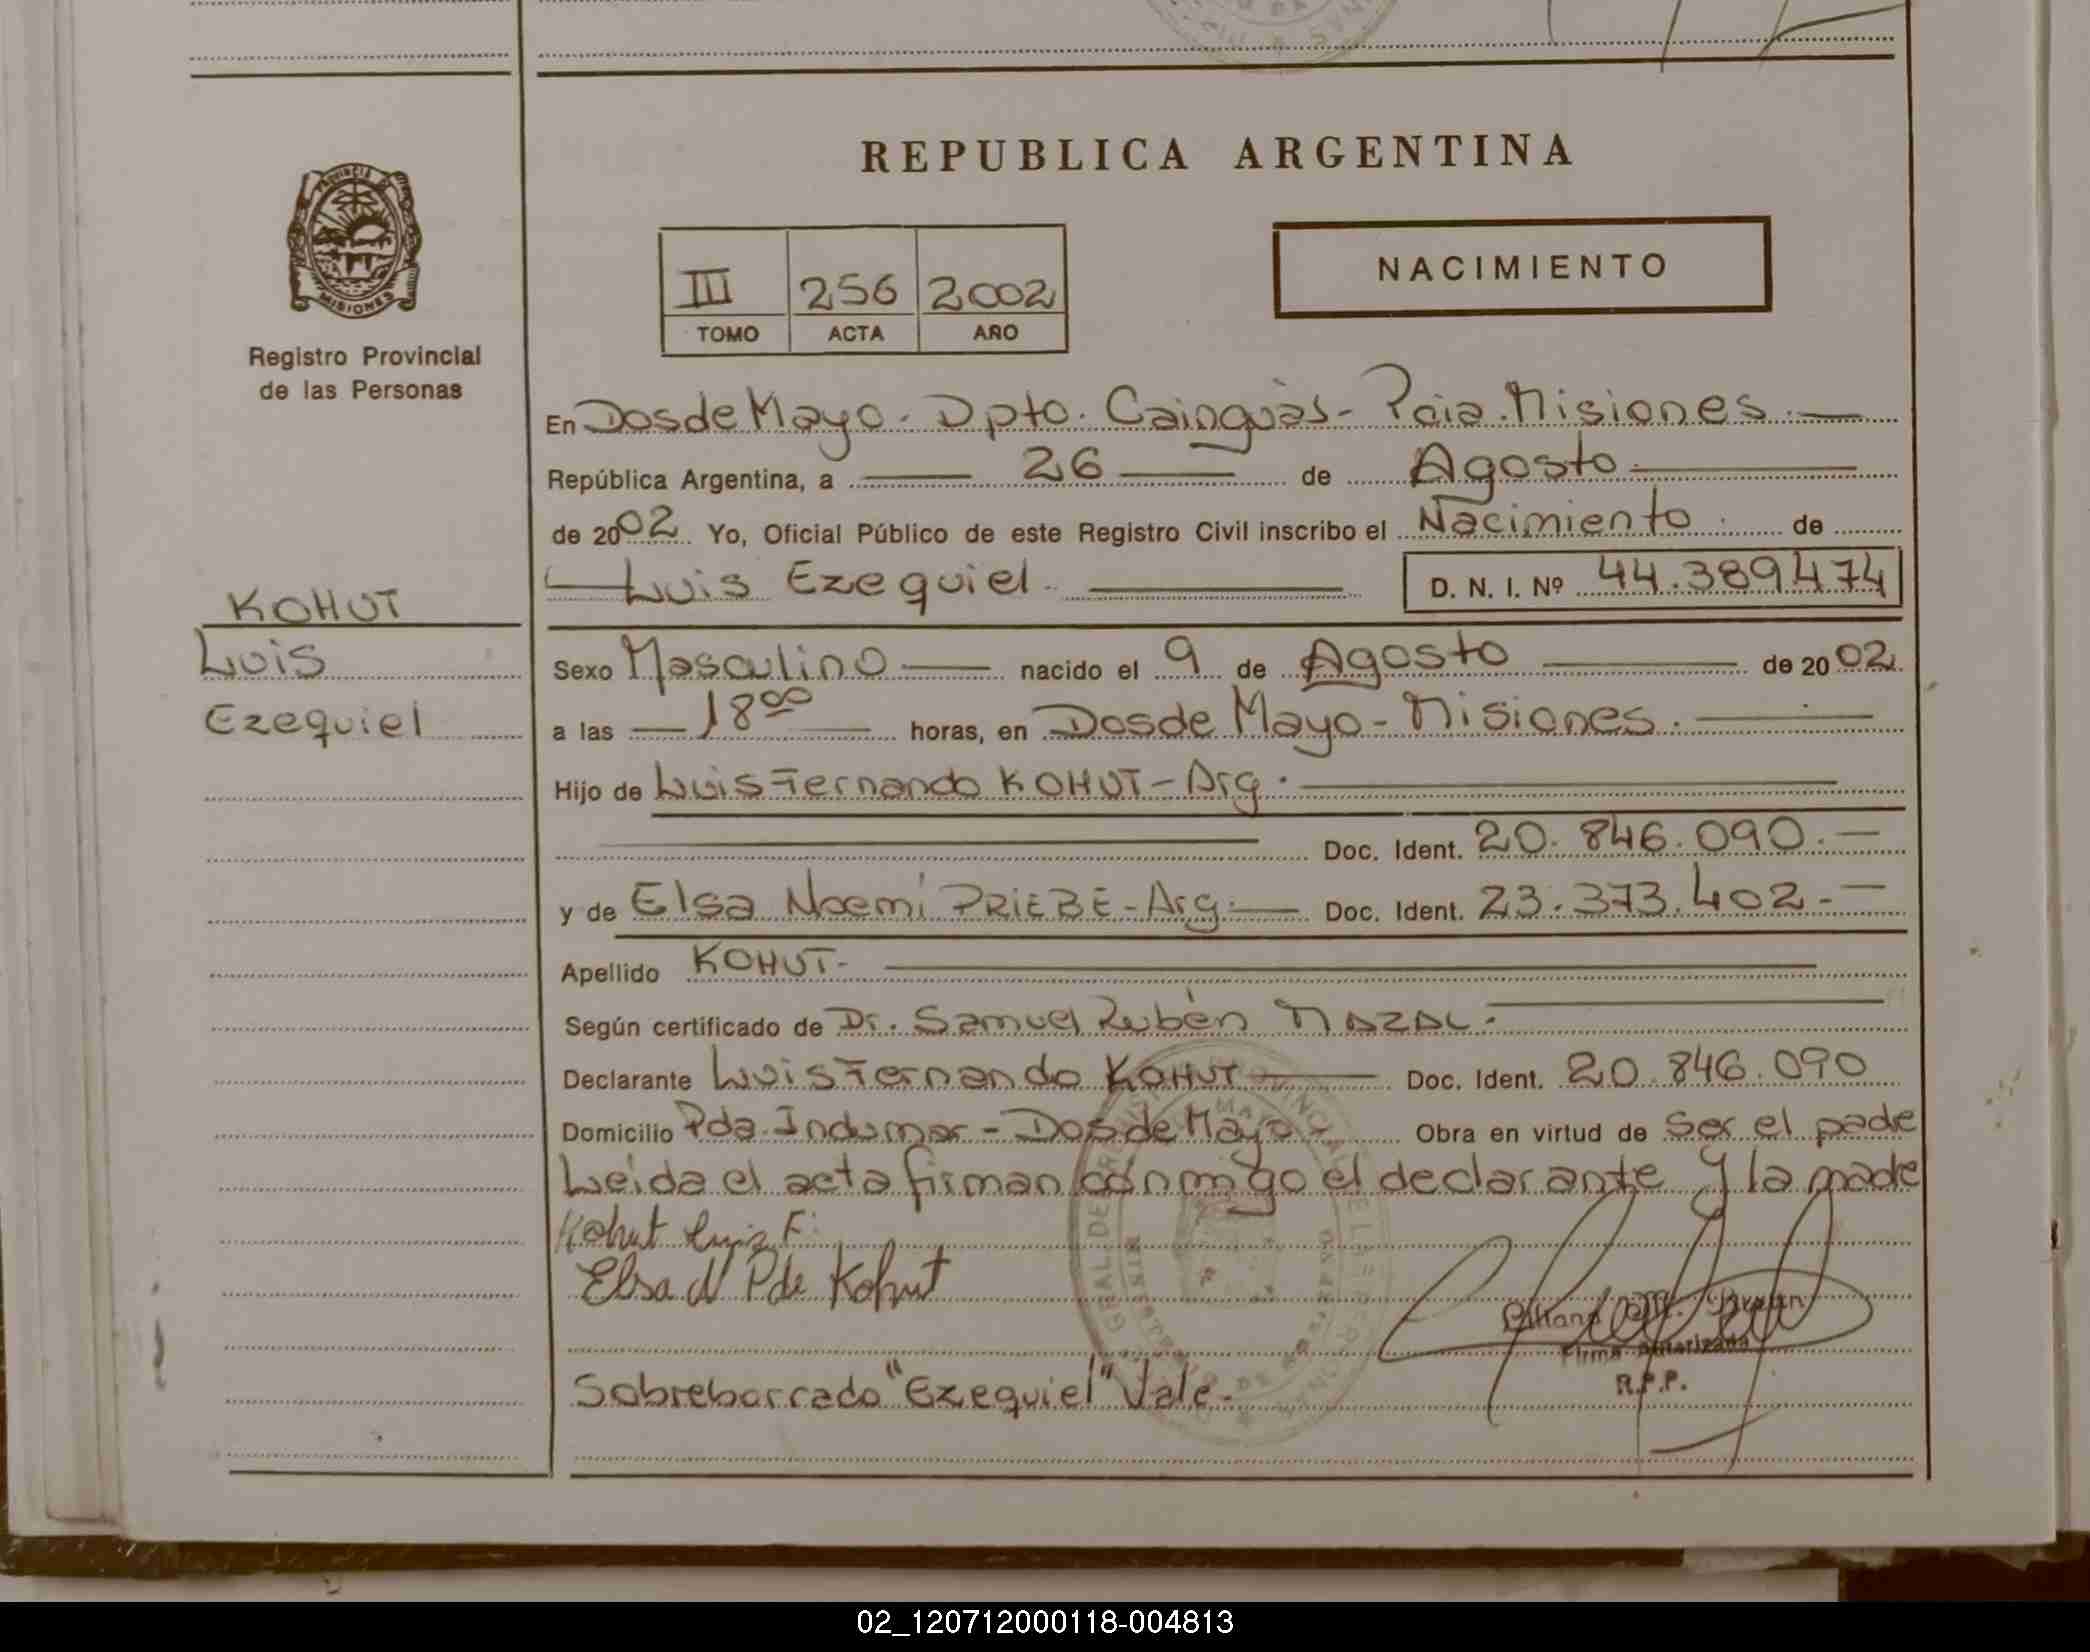 REPUBLICA ARGENTINA
PROVINCIA DE MISIONES
Registro Provincial
de las Personas
III 256 2002
TOMO ACTA AÑO
NACIMIENTO
En Dos de Mayo - Dpto. Cainguàs - Pcia. Misiones.
República Argentina, a 26 de Agosto
de 2002 Yo, Oficial Público de este Registro Civil inscribo el Nacimiento de
Luis Ezequiel D. N. I. Nº 44.389474
KOHUT
Luis
Ezequiel
Sexo Masculino nacido el 9 de Agosto de 2002
a las 18 00 horas, en Dos de Mayo - Misiones.
Hijo de Luis Fernando KOHUT - Arg.
Doc. Ident. 20.846.090.
y de Elsa Noemí PRIEBE - Arg. Doc. Ident. 23.373.402.
Apellido KOHUT-
Según certificado de Dr. Samuel Rubén MAZAL.
Declarante Luis Fernando KOHUT Doc. Ident. 20.846.090
Domicilio Pda. Indumar - Dos de Mayo - Obra en virtud de ser el padre
Leída el acta firman conmigo el declarante y la madre
Kohut Luis F.
Elsa N P de Kohut
Firma Autorizada
R.P.P.
Sobreborrado "Ezequiel" Vale.
02_120712000118-004813